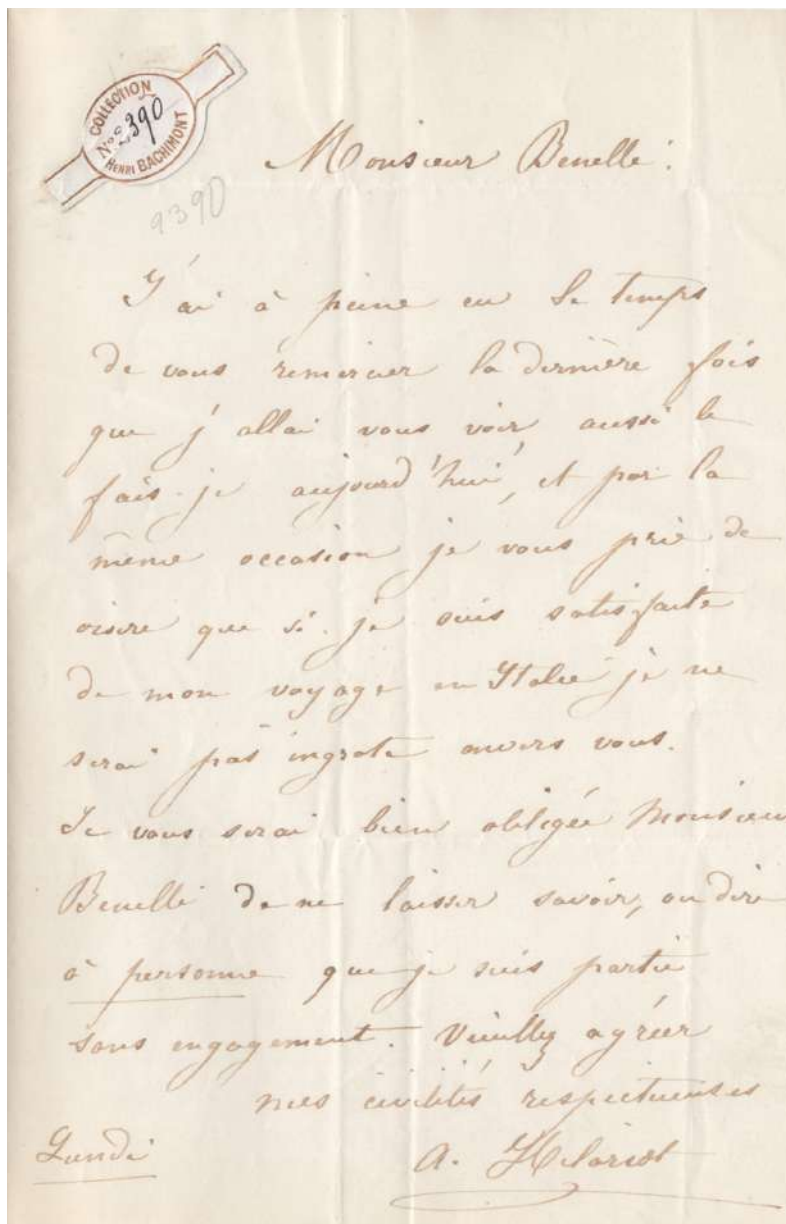 COLLECTION
No 2390
HENRI BACHIMONT
9390
Monsieur Benelli.
J'ai à peine eu le temps
de vous remercier la dernière fois
que j'allai vous voir aussi le
fais-je aujourd'hui, et par la
même occasion je vous prie de
croire que si je suis satisfaite
de mon voyage en Italie je ne
serai pas ingrate envers vous.
Je vous serai bien obligée Monsieur
Benelli de ne laisser savoir, ou dire
à personne que je suis partie
sans engagement. Veuillez agréer
mes civilités respectueuses
Lundi
A.